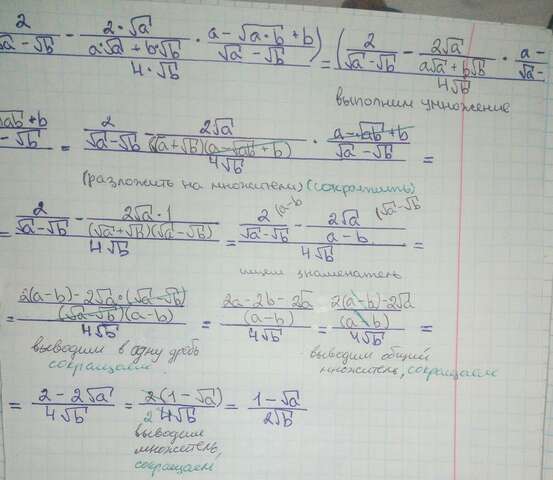 2/(√a − √b) − (2·√a)/(a√a + b·√b) · (a − √(a·b) + b)/(√a − √b) ) / (4·√b) = ( 2/(√a − √b) − (2√a)/(a√a + b√b) · (a −)/(√a −) / (4√b)
выполним умножение
(√ab + b)/(− √b) = ( 2/(√a − √b) − (2√a)/((√a + √b)(a − √ab + b)) · (a − √ab + b)/(√a − √b) ) / (4√b) =
(разложить на множители) (сократить)
= ( 2/(√a − √b) − (2√a · 1)/((√a + √b)(√a − √b)) ) / (4√b) = ( 2/(√a − √b) (a−b − (2√a)/(a − b) (√a − √b ) / (4√b) =
ищем знаменатель
= ( (2(a − b) − 2√a · (√a − √b))/((√a − √b)(a − b)) ) / (4√b) = ( (2a − 2b − 2√a)/(a − b) ) / (4√b) = ( (2(a − b) − 2√a)/(a − b) ) / (4√b) =
выводим в одну дробь
сокращаем
выводим общий
множитель, сокращаем
= (2 − 2√a)/(4√b) = (2(1 − √a))/(2 4√b) = (1 − √a)/(2√b)
выводим
множитель,
сокращаем